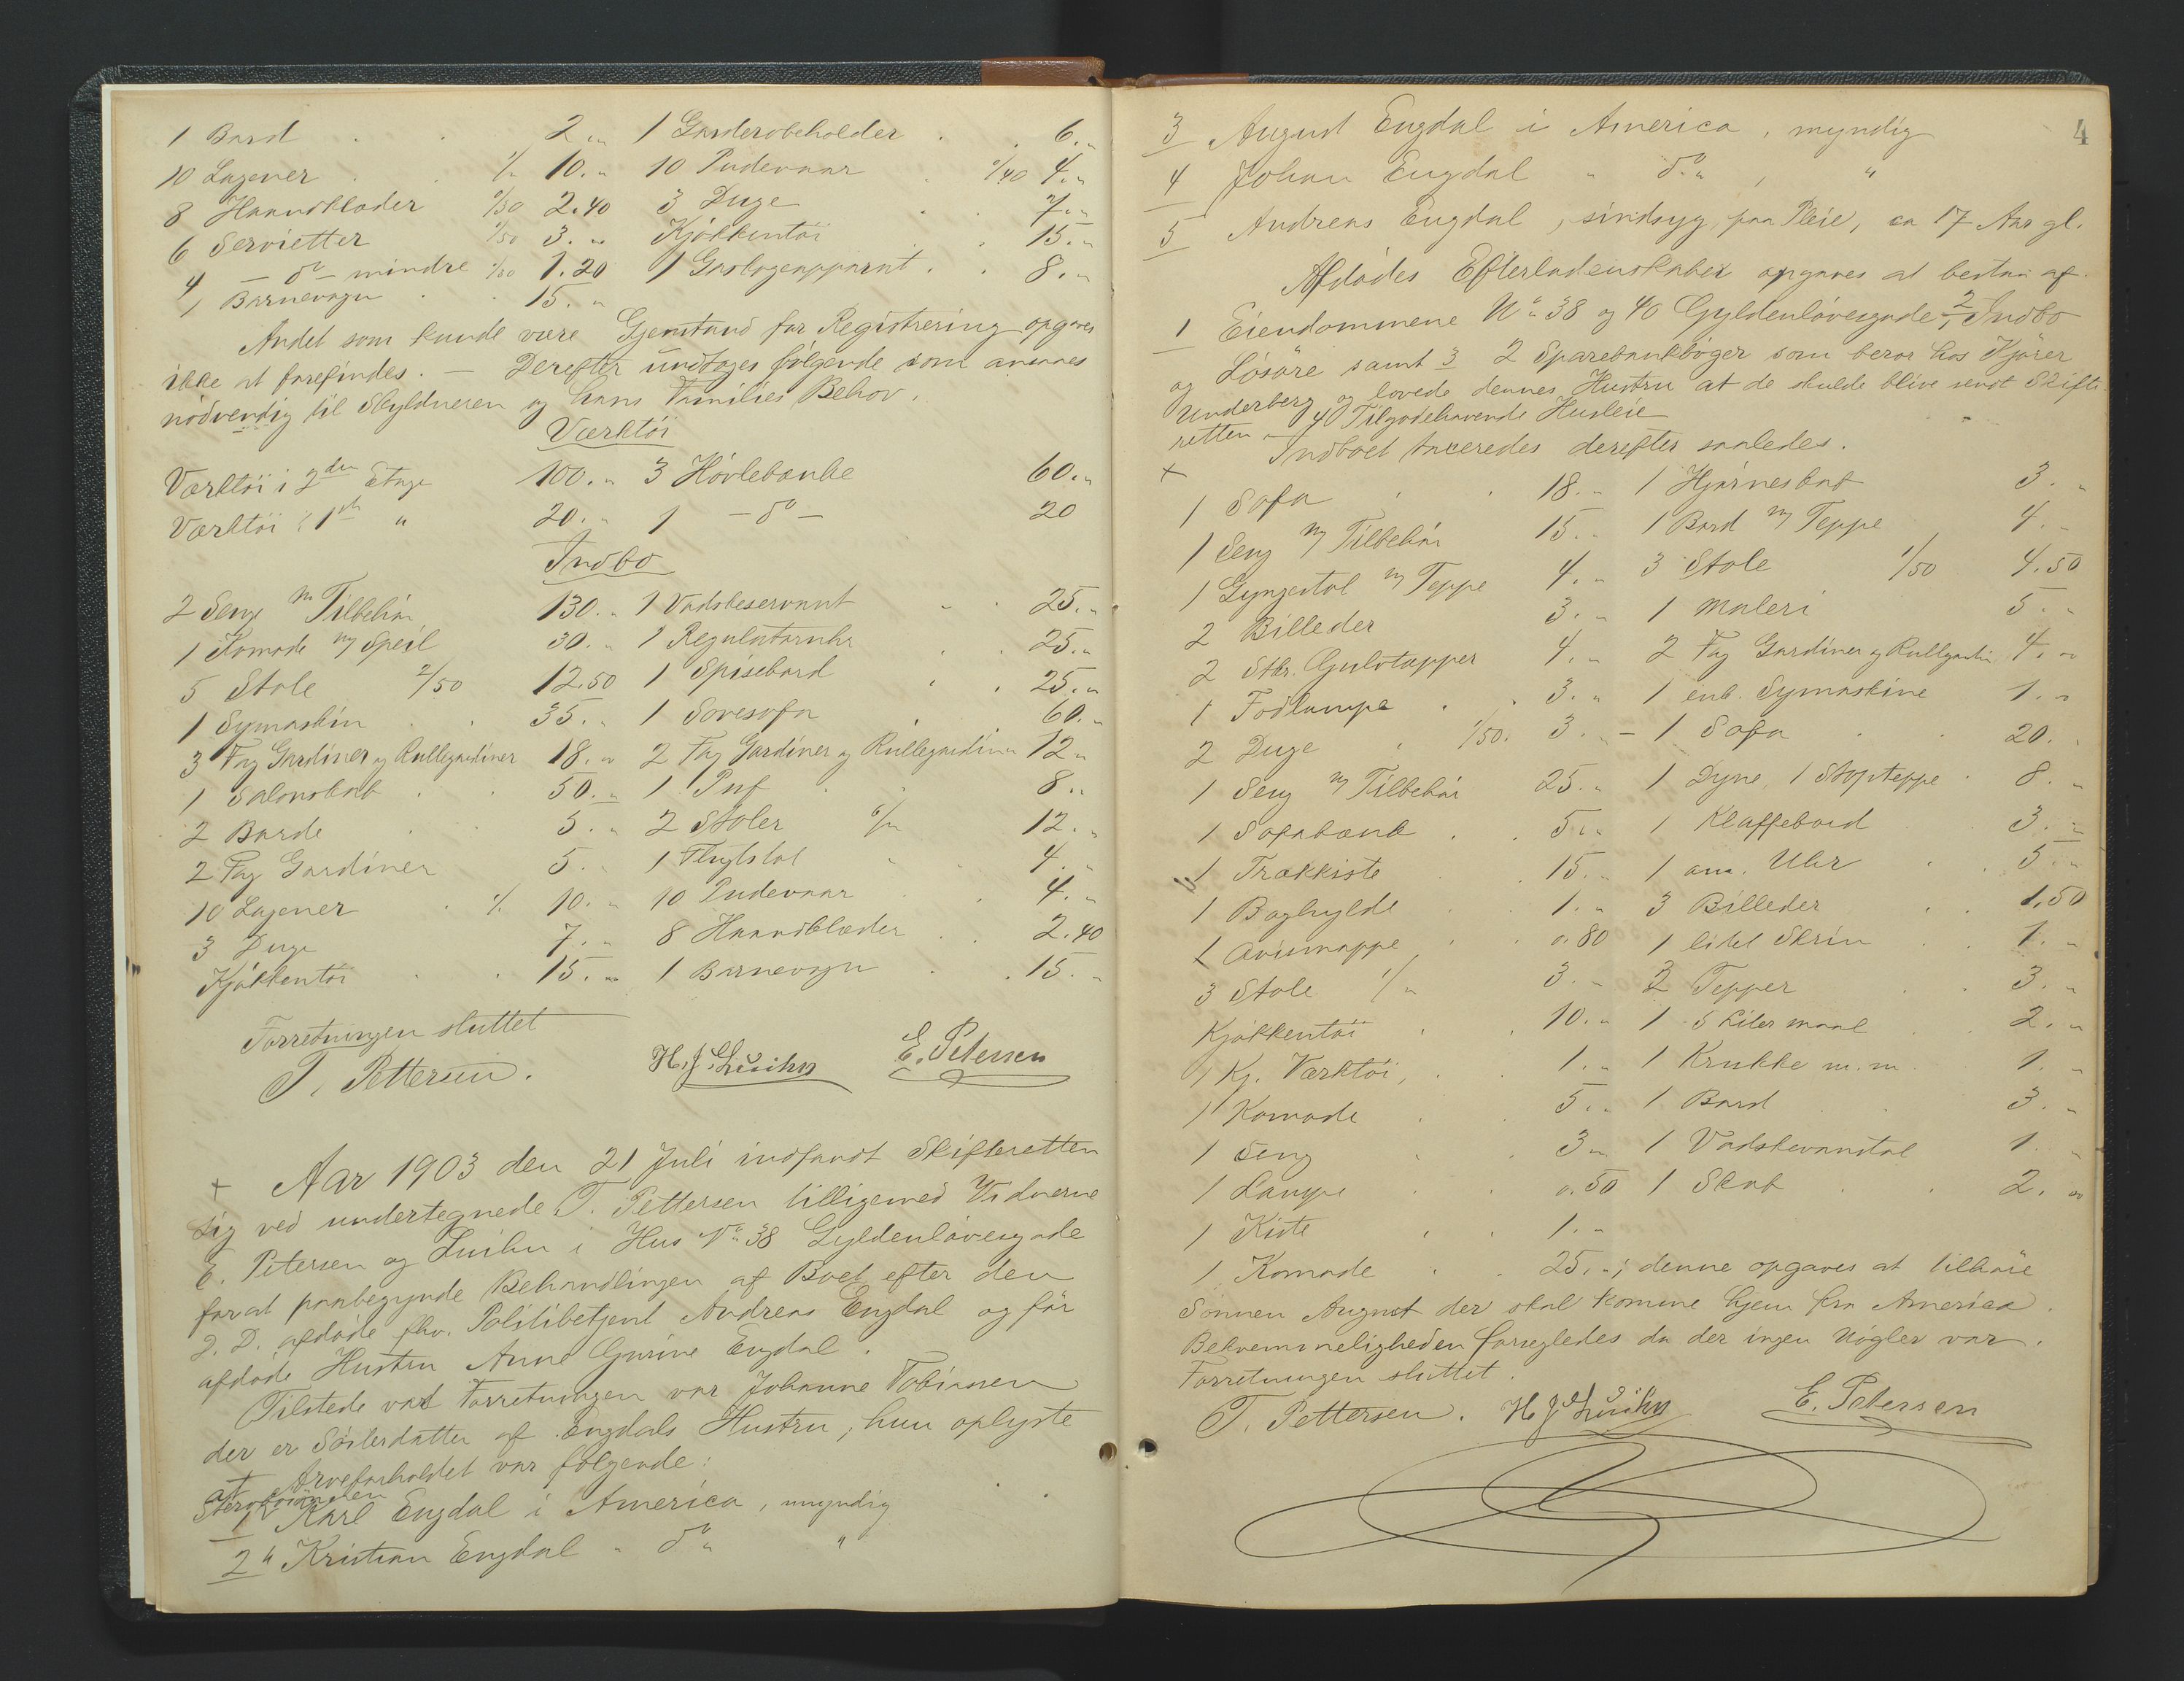 1 Bord . . 2 „ 1 Garderobeholder . . 6. „
10 Lagener . . 1/„ 10. „ 10 Pudevaar . 0/40 4. „
8 Haandklæder 0/30 2.40 3 Duge . . 7. „
6 Servietter 0/50 3. „ Kjøkkentøi . . 15. „
4 – do – mindre 0/30 1.20 1 Gaslageapparat . . 8. „
1 Barnevogn . . 15. „
Andet som kunde være Gjenstand for Registrering opgaves
ikke at forefindes. — Derefter undtoges følgende som ansaaes
nødvendig til Skyldneren og hans Families Behov.
Værktøi
Værktøi i 2den Etage 100. „ 3 Høvlebænke 60. „
Værktøi i 1ste „ 20. „ 1 – do – 20
Indbo
2 Senge m Tilbehør 130. „ 1 Vadskeservant . . 25. „
1 Komode m/ Speil 30. „ 1 Regulatoruhr . . 25. „
5 Stole 2/50 12.50 1 Spisebord . . 25. „
1 Symaskin . . 35. „ 1 Sovesofa . 60. „
3 Fag Gardiner og Rullegardiner 18. „ 2 Fag Gardiner og Rullegardiner 12 „
1 Salonskab . . 50. „ 1 Puf . . 8. „
2 Borde . . 5. „ 2 Stoler 6/„ 12. „
2 Fag Gardiner 5. „ 1 Fløtstol . . 4. „
10 Lagener . 1/. 10. „ 10 Pudevaar . . 4. „
3 Duge 7. „ 8 Haandklæder . . 2.40
Kjøkkentøi . . 15. „ 1 Barnevogn . . 15. „
Forretningen sluttet
T. Pettersen. H. J. Luihn E. Petersen
+ Aar 1903 den 21 Juli indfandt Skifteretten
sig ved undertegnede T. Pettersen tilligemed Vidnerne
E. Petersen og Luihn i Hus No 38 Gyldenløvesgade
forat paabegynde Behandlingen af Boet efter den
2. D. afdøde fhv. Politibetjent Andreas Engdal og før
afdøde Hustru Anne Gurine Engdal.
Tilstede ved Forretningen var Johanne Tobiasen
der er Søsterdatter af Engdals Hustru, hun oplyste
at Arveforholdet var følgende:
1 Karl Engdal i America, myndig
2 " Kristian Engdal „ do „ "
4
3 August Engdal i America, myndig
4 Johan Engdal „ do „ , "
5 Andreas Engdal, sindsyg, paa Pleie, ca 17 Aar gl.
Afdødes Efterladenskaber opgaves at bestaa af.
1 Eiendommene No 38 og 40 Gyldenløvesgade, 2 Indbo
og Løsøre samt 3 2 Sparebankbøger som beror hos Kjører
Underberg og lovede dennes Hustru at de skulde blive sendt Skifte
retten – 4 Tilgodehavende Husleie
+ Indboet taxeredes derefter saaledes.
1 Sofa . . 18. „ 1 Hjørneskab 3. „
1 Seng m/ Tilbehør 15. „ 1 Bord m/ Teppe 4. „
1 Gyngestol m/ Teppe 4. „ 3 Stole 1/50 4.50
2 Billeder 3. „ 1 Maleri 5. „
2 Stkr. Gulvtæpper 4. „ 2 Fag Gardiner og Rullgardin 4. „
1 Fodlampe . . 3. „ 1 enk. Symaskine 1. „
2 Duge . 1/50. 3. „ – 1 Sofa . . 20. „
1 Seng m/ Tilbehør 25. „ 1 Dyne, 1 Stopteppe . 8. „
1 Sofabænk . . 5. „ 1 Klaffebord 3. „
1 Trækkiste . 15. „ 1 am. Uhr . . 5. „
1 Boghylde . . 1. „ 3 Billeder . . 1.50
1 Avismappe . . 0.80 1 lidet Skrin . . 1. „
3 Stole 1/„ 3. „ 2 Tepper . . 3. „
Kjøkkentøi . . 10. „ 1 5 Liter maal . 2. „
1 Kj. Værktøi, . . 1. „ 1 Krukke m.m. 1. „
1 Komode . 5. „ 1 Bord . . 3. „
1 Seng . . 3 „ 1 Vadskevandstol 1. „
1 Lampe . . 0.50 1 Skab . . 2. „
1 Kiste . . 1. „
1 Komode . . 25. „; denne opgaves at tilhøre
Sønnen August der skal komme hjem fra America.
Bekvemmeligheden forsegledes da der ingen Nøgler var.
Forretningen sluttet.
T. Pettersen. H J Luihn E. Petersen